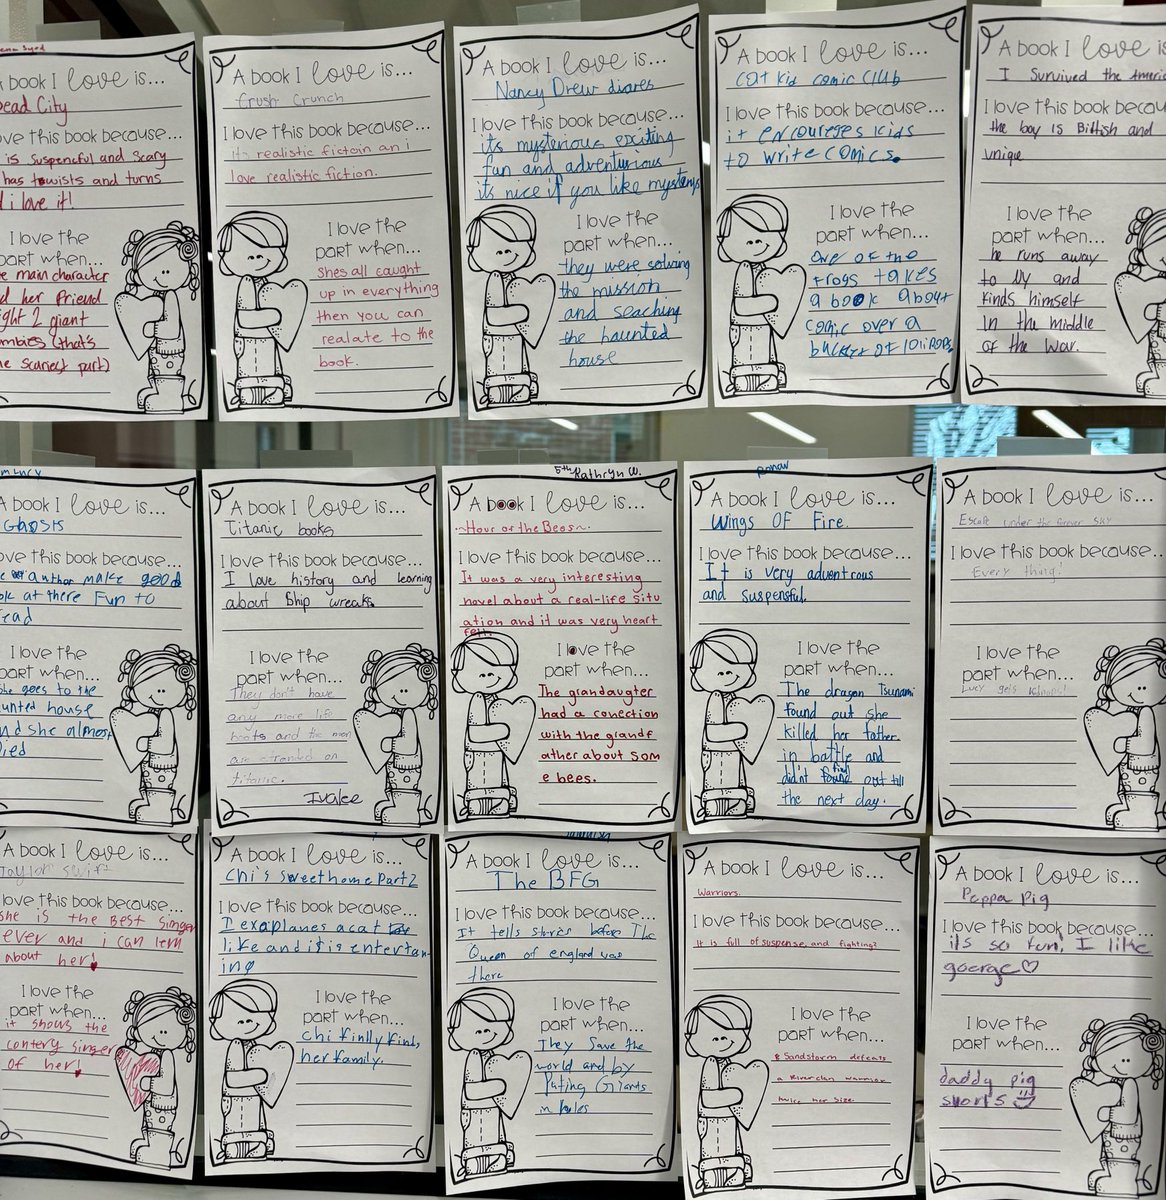 A book I love is...
Dead City
love this book because...
is suspenceful and scary
has towists and turns
i love it!
I love the
part when...
main character
her friend
2 giant
(that's
scariest part)
A book I love is...
Crush Crunch
I love this book because...
its realistic fictoin an i
love realistic fiction.
I love the
part when...
shes all caught
up in everything
then you can
realate to the
book.
A book I love is...
Nancy Drew diares
I love this book because...
its mysterious exciting
fun and adventurious
its nice if you like mysterys
I love the
part when...
they were solving
the mission
and seaching
the haunted
house
A book I love is...
cat kid comic club
I love this book because...
it encourges kids
to write comics.
I love the
part when...
one of the
frogs takes
a book about
comic over a
of
A book I love is...
I Survived the
I love this book
the boy is Bittish and
unique
I love the
part when...
he runs away
to Ny and
kinds himself
in the middle
of the war.
A book I love is...
Ghosts
love this book because...
author make good
at there Fun to
I love the
part when...
she goes to the
house
she almost
died
A book I love is...
Titanic books
I love this book because...
I love history and learning
about Ship wreaks
I love the
part when...
They don't have
any more life
boats and the men
are stranded on
titanic.
Ivalee
5th Kathryn W.
A book I love is...
~Hour of the Bees~
I love this book because...
It was a very interesting
novel about a real-life situ
ation and it was very heart
felt.
I love the
part when...
The grandaugter
had a conection
with the grandf
ather about som
e bees.
A book I love is...
Wings OF Fire
I love this book because...
It is very adventrous
and suspensful.
I love the
part when...
The dragon Tsunami
found out she
killed her father
in battle and
didn't find out till
the next day.
A book I love is...
Escape under the forever sky
I love this book because...
Every thing!
I love the
part when...
Lucy gets kidnapped!
A book I love is...
Taylor Swift
love this book because...
she is the Best Singer
ever and i can lern
about her!
I love the
part when...
it shows the
contery singer
of her!
A book I love is...
Chi's sweet home Part 2
I love this book because...
I exaplanes a cat
like and it is entertan
ing
I love the
part when...
chi finlly finds
her family.
A book I love is...
The BFG
I love this book because...
It tells stories before The
Queen of england was
there
I love the
part when...
They save the
world and by
Puting Giants
in holes
A book I love is...
Warriors.
I love this book because...
It is full of suspense, and fighting!
I love the
part when...
Sandstorm defeats
a Riverclan warrior
twice her size
A book I love is...
Peppa Pig
I love this book because...
its so fun, I like
goerge
I love the
part when...
daddy pig
snorts